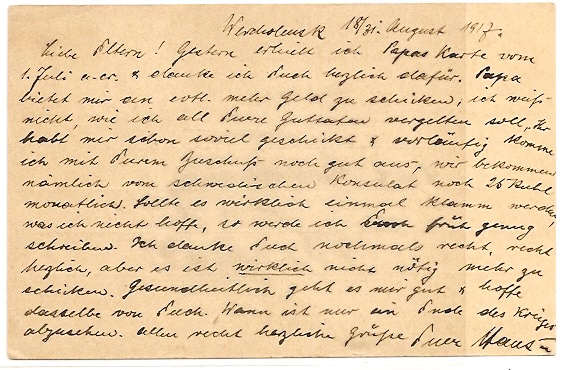 Wercholensk 18/31. August 1917.
Liebe Eltern! Gestern erhielt ich Papas Karte vom
1. Juli a. cr. & danke ich Euch herzlich dafür. Papa
bietet mir an evtl. mehr Geld zu schicken, ich weiß
nicht, wie ich all Eure Guttaten vergelten soll, Ihr
habt mir schon soviel geschickt & vorläufig komme
ich mit Eurem Zuschuß noch gut aus, wir bekommen
nämlich vom schwedischen Konsulat noch 25 Rubel
monatlich. Sollte es wirklich einmal klamm werden,
was ich nicht hoffe, so werde ich Euch früh genug
schreiben. Ich danke Euch nochmals recht, recht
herzlich, aber es ist wirklich nicht nötig mehr zu
schicken. Gesundheitlich geht es mir gut & hoffe
dasselbe von Euch. Wann ist nur ein Ende des Krieges
abzusehen. Allen recht herzliche Grüße Euer Hans